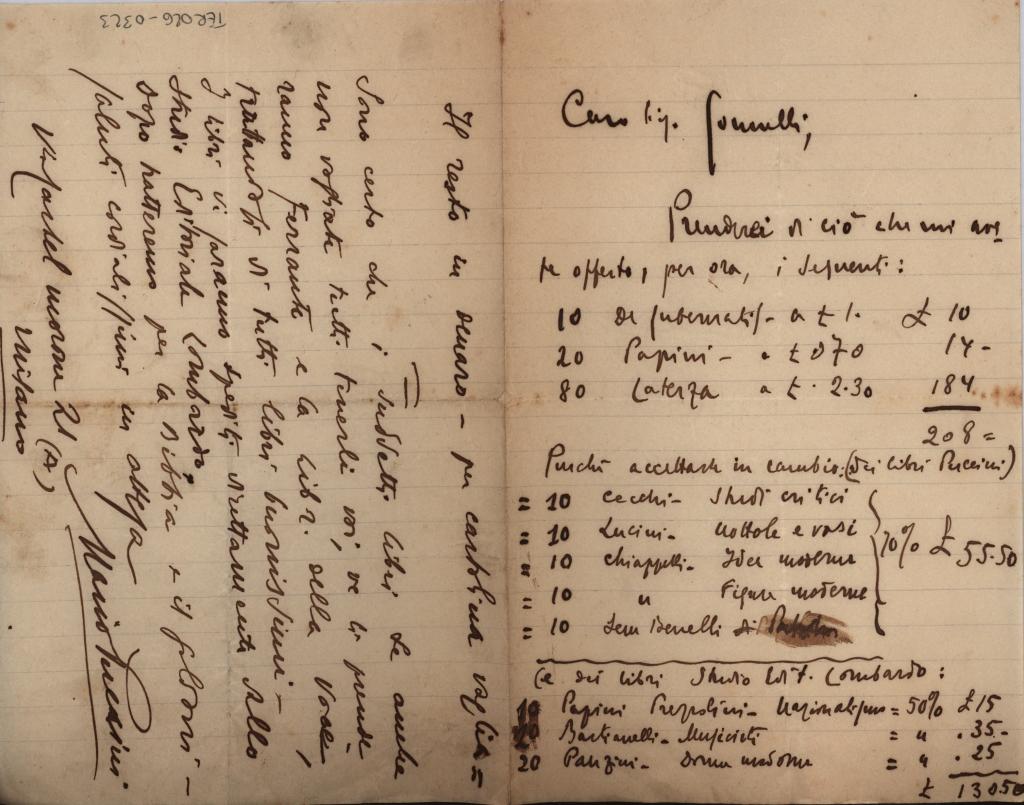 Caro Sig. Gonnelli,
Prenderei di ciò che mi ave
te offerto, per ora, i seguenti:
10 De Gubernatis - a £ 1. £ 10
20 Papini - a £ 0 70 14 -
80 Laterza a £. 2.30 184
208 =
Purchè accettiate in cambio: (dei libri Puccini)
= 10 Cecchi - Studi critici
= 10 Lucini - Nottole e vasi
" 10 Chiappelli - Idee moderne 70% £ 55.50
" 10 " Figure moderne
= 10 Sem Benelli di
(e dei libri Studio Edit. Lombardo:
10 Papini Prezzolini - Nazionalismo = 50% £ 15
20 Bastianelli - Musicisti = " . 35 -
20 Panzini - Donne moderne = " . 25
£ 130 50
Il resto in denaro - per cartolina vaglia =
Sono certo che i suddetti libri se anche
non vogliate tutti tenerli voi, ve li prende
ranno Ferrante e la Libr. della Voce,
trattandosi di tutti libri buonissimi -
I libri vi saranno spediti direttamente dallo
Studio Editoriale Lombardo.
Dopo tratteremo per la Bibbia e il Goldoni -
Saluti cordialissimi in attesa
Mario Puccini.
Vitt. Morone 21 (A)
Milano
TER026-0323